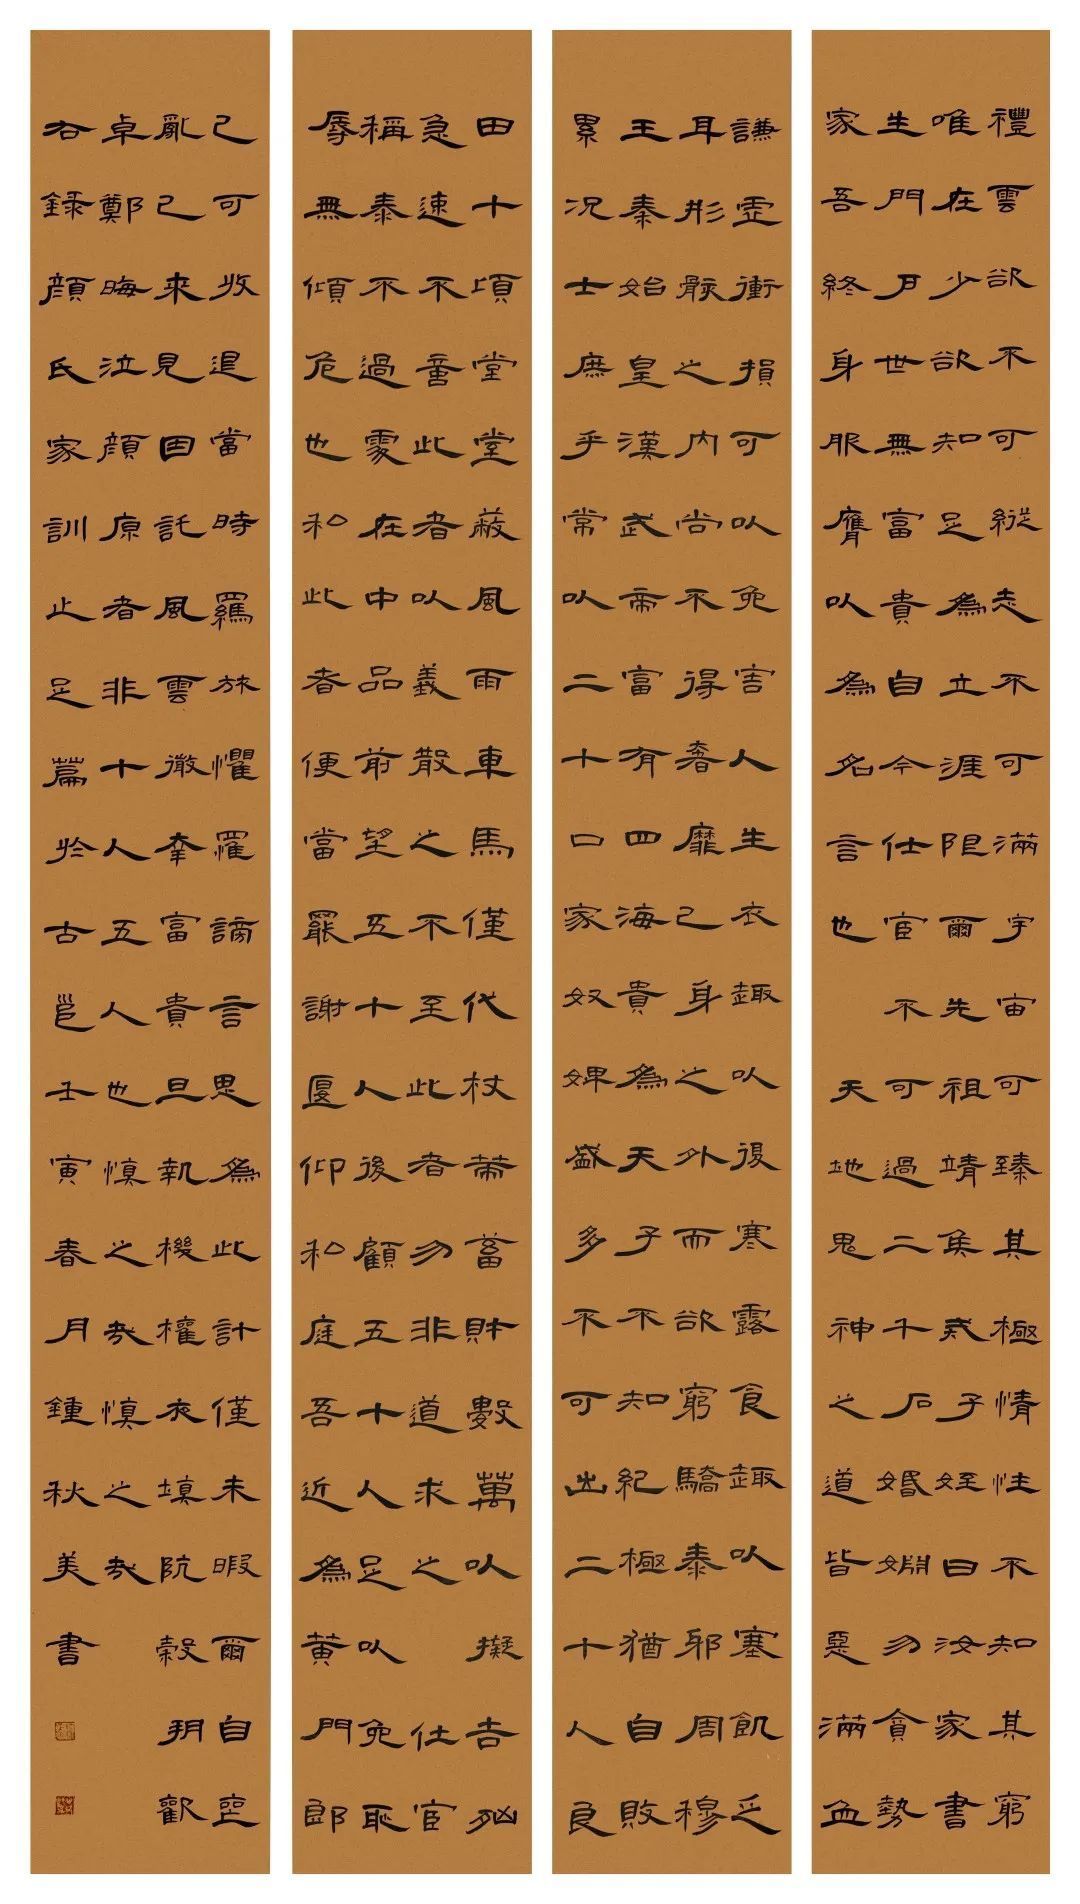 禮雲欲不可縱志不可滿宇宙可臻其極情性不知其窮
唯在少欲知足為立涯限爾先祖靖侯戒子姪曰汝家書
生門戶世無富貴自今仕宦不可過二千石婚姻勿貪勢
家吾終身服膺以為名言也 天地鬼神之道皆惡滿盈
謙虛衝損可以免害人生衣趣以復寒露食趣以塞飢乏
耳形骸之內尚不得奢靡己身之外而欲窮驕泰邪周穆
王秦始皇漢武帝富有四海貴為天子不知紀極猶自敗
累況士庶乎常以二十口家奴婢盛多不可出二十人良
田十頃堂室蔽風雨車馬僅代杖策蓄財數萬以擬吉凶
急速不嗇此者以義散之不至此者勿非道求之仕宦
稱泰不過處在中品前望五十人後顧五十人足以免恥
辱無傾危也和此者便當罷謝偃仰和庭吾近為黃門郎
已可收退當時羈旅懼罹謗言思為此計僅未暇爾自喪
亂已來見因託風雲徼倖富貴旦執機權夜填阬穀朔歡
卓鄭晦泣顏原者非十人五人也慎之哉慎之哉
右錄顏氏家訓止足篇於古邕壬寅春月鍾秋美書